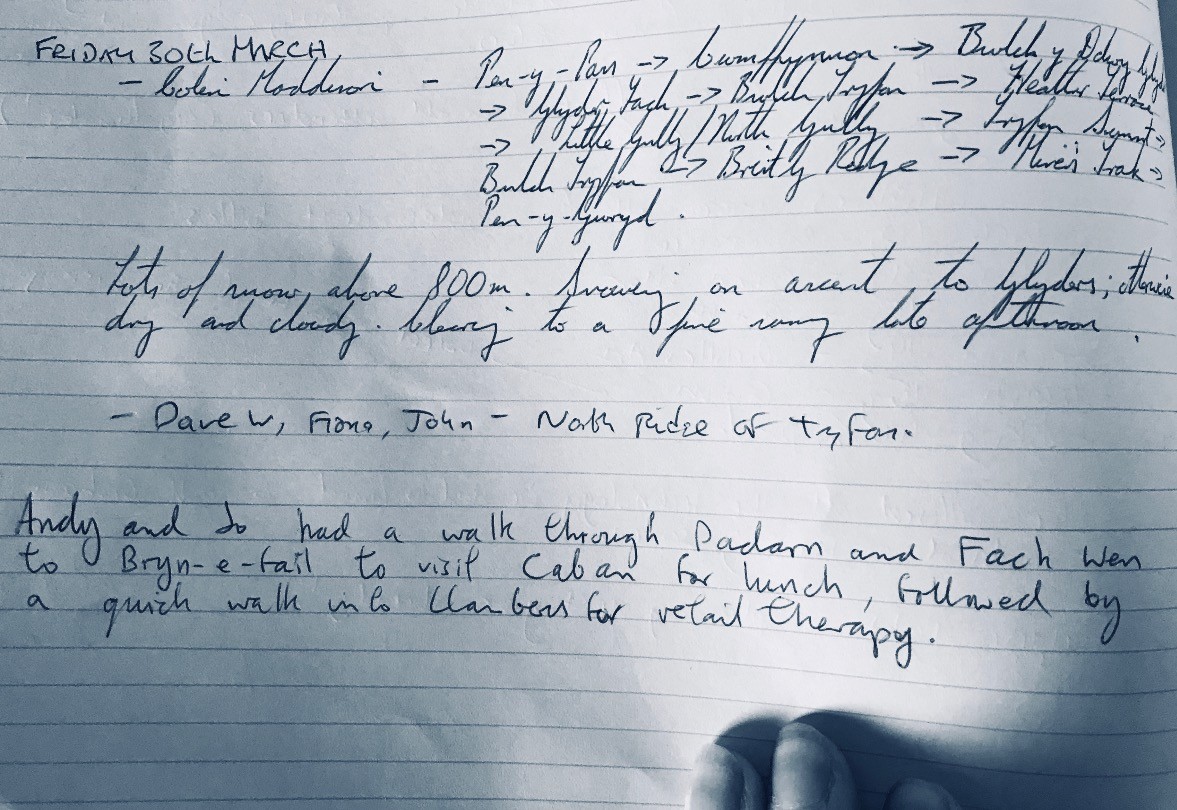 FRIDAY 30th MARCH
- Colin Maddison - Pen-y-Pass -> Cwmffynnon -> Bwlch y Ddwy Glyder
-> Glyder Fach -> Bwlch Tryfan -> Heather Terrace
-> Little Gully/North Gully -> Tryfan Summit ->
Bwlch Tryfan -> Bristly Ridge -> Miner's Track ->
Pen-y-Gwryd.
Lots of snow above 800m. Snowing on ascent to Glyders; otherwise
dry and cloudy. Clearing to a fine sunny late afternoon.
- Dave W, Fiona, John - North Ridge of Tryfan.
Andy and Jo had a walk through Padarn and Fach Wen
to Bryn-e-fail to visit Caban for lunch, followed by
a quick walk into Llanberis for retail therapy.